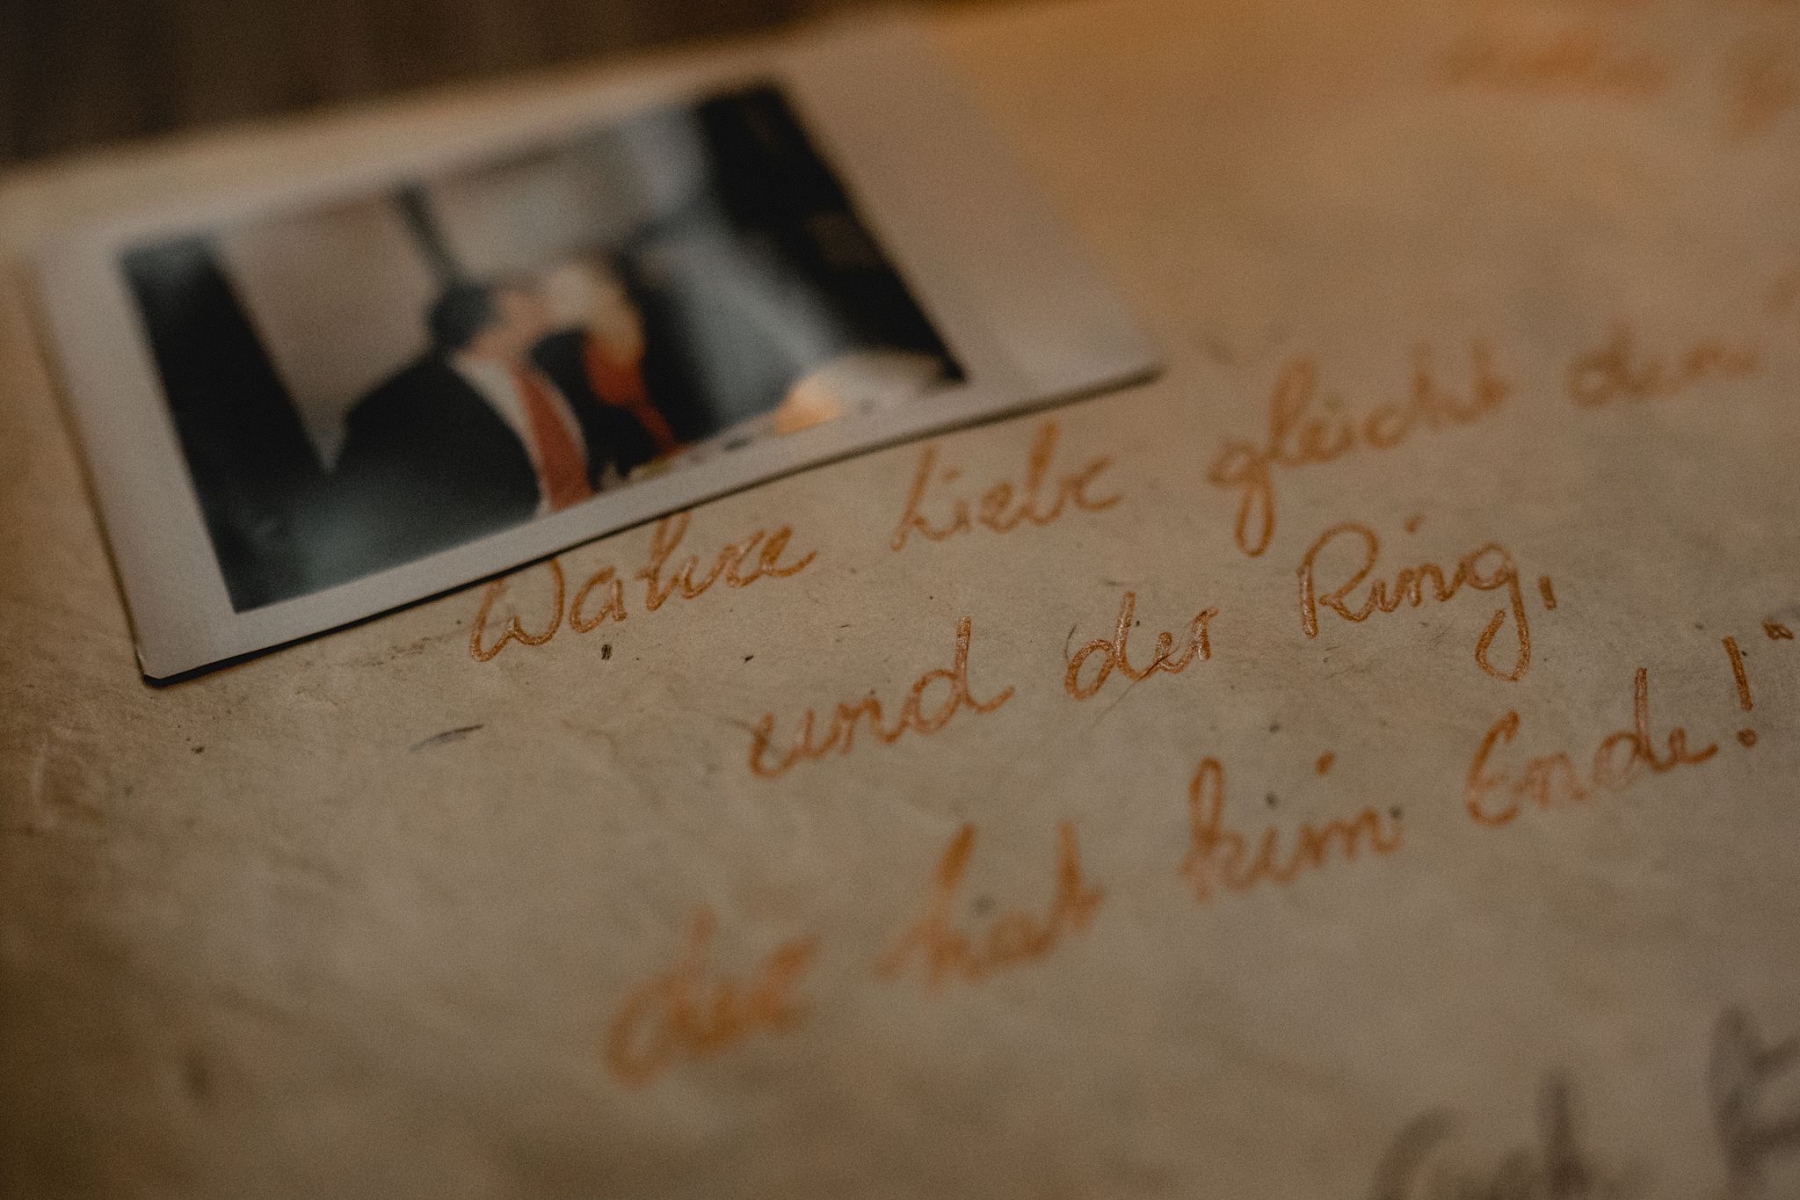 Wahre Liebe gleicht dem
und der Ring,
der hat kein Ende!"